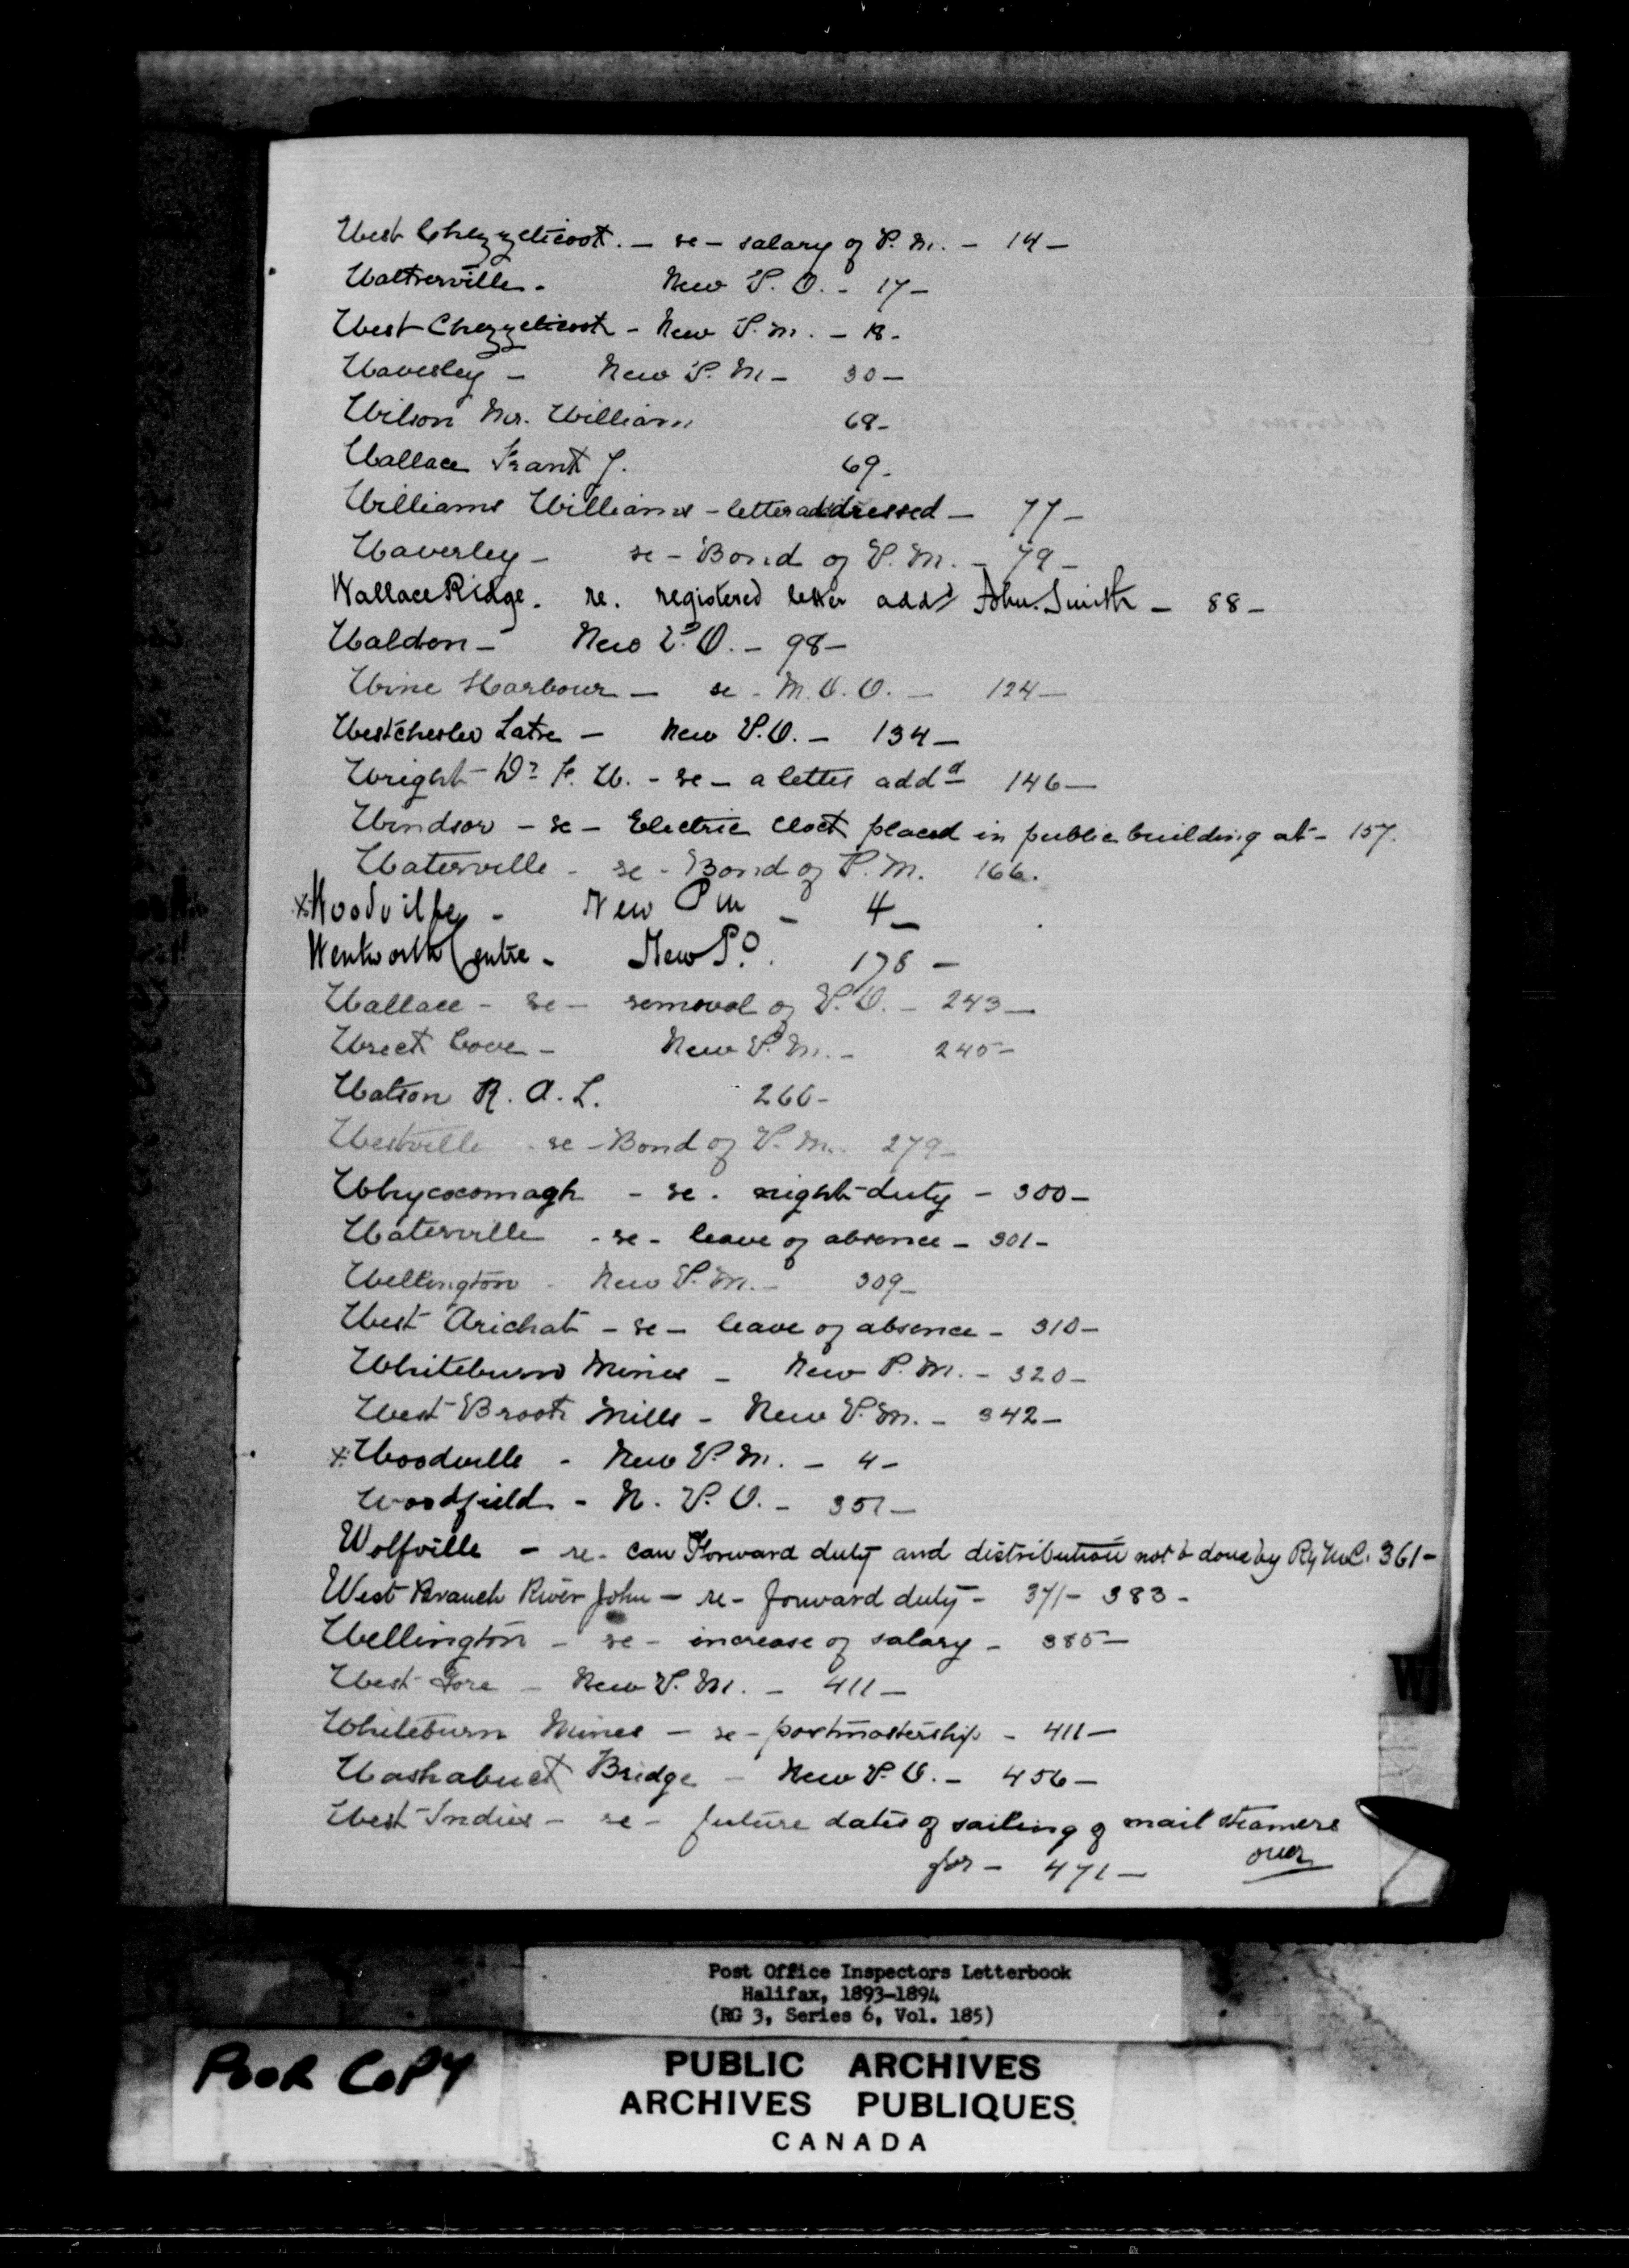 West Chezzetcook. - re - salary of P. M. - 14 -
Walterville - New P. O. - 17 -
West Chezzetcook - New P. M. - 18 -
Waverley - New P. M - 30 -
Wilson Mr. William 68 -
Wallace Frank J. 69 -
Williams Williams - letter addressed - 77 -
Waverley - re - Bond of P. M. - 79 -
Wallace Ridge. re. registered letter addd John Smith - 88 -
Waldon - New P. O. - 98 -
Wine Harbour - re - M. O. O. - 124 -
Westchester Lake - New P. O. - 134 -
Wright Dr F. W. - re - a letter addd 146 -
Windsor - re - Electric clock placed in public building at - 157.
Waterville - re - Bond of P. M. 166.
x Woodville - New P M - 4 -
Wentworth Centre - New P.O. 178 -
Wallace - re - removal of P. O. - 243 -
Wreck Cove - New P. M. - 245 -
Watson R. A. L. 266 -
Westville - re - Bond of P. M. 279 -
Whycocomagh - re. night duty - 300 -
Waterville - re - leave of absence - 301 -
Wellington - New P. M. - 309 -
West Arichat - re - leave of absence - 310 -
Whiteburn Mines - New P. M. - 320 -
West Brook Mills - New P. M. - 342 -
x Woodville - New P. M. - 4 -
Woodfield - N. P. O. - 351 -
Wolfville - re - can Forward duty and distribution not be done by Ry M.C. 361 -
West Branch River John - re - forward duty - 371 - 383 -
Wellington - re - increase of salary - 385 -
West Gore - New P. M. - 411 -
Whiteburn Mines - re - postmastership - 411 -
Washabuck Bridge - New P. O. - 456 -
West Indies - re - future dates of sailing of mail steamers
for - 471 -
over
W
Post Office Inspectors Letterbook
Halifax, 1893-1894
(RG 3, Series 6, Vol. 185)
POOR COPY
PUBLIC ARCHIVES
ARCHIVES PUBLIQUES
CANADA